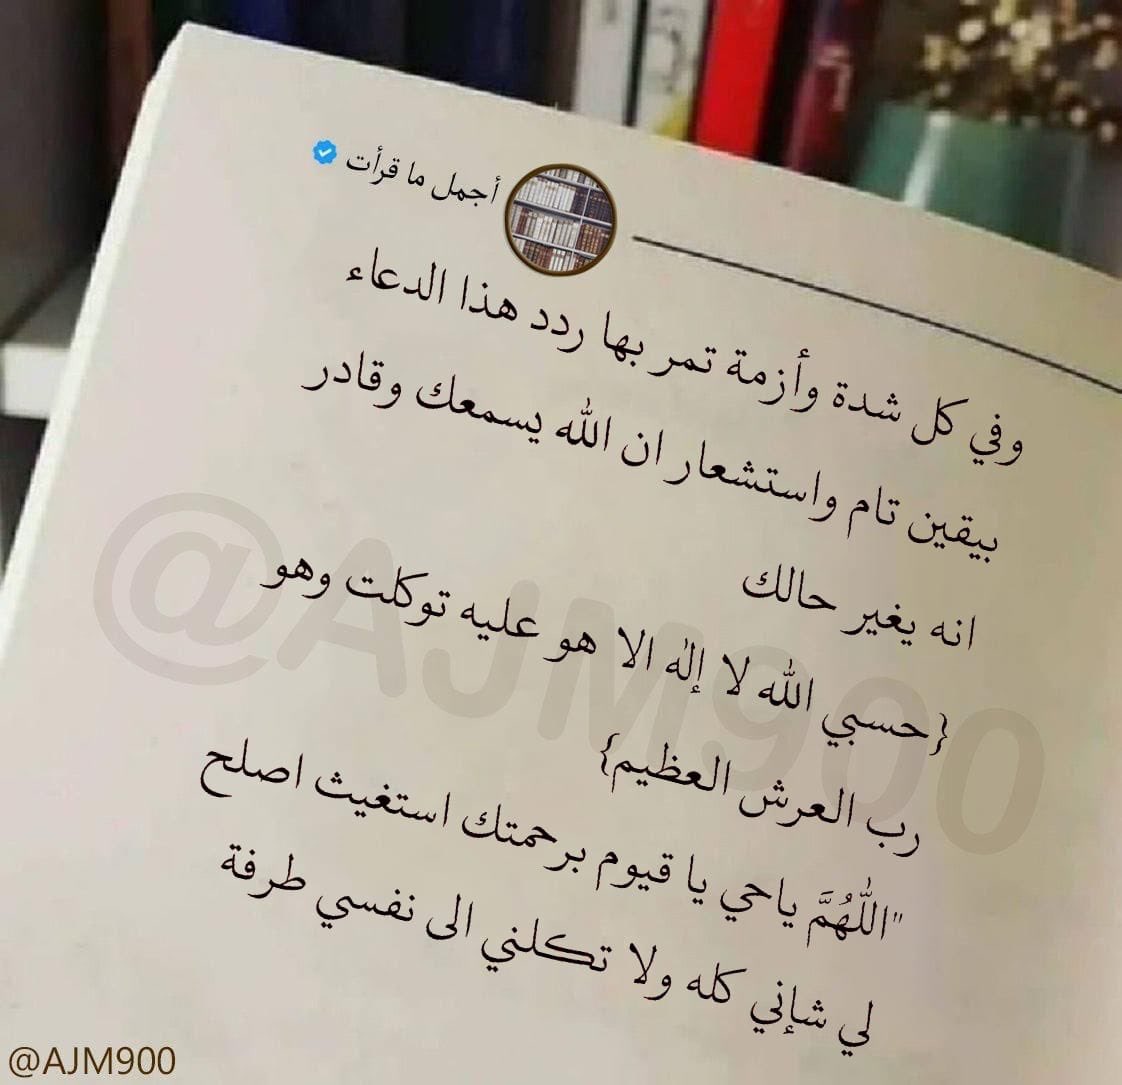 أجمل ما قرأت
وفي كل شدة وأزمة تمر بها ردد هذا الدعاء
بيقين تام واستشعار ان الله يسمعك وقادر
انه يغير حالك
{حسبي الله لا إله الا هو عليه توكلت وهو
رب العرش العظيم}
"اللَّهُمَّ ياحي يا قيوم برحمتك استغيث اصلح
لي شإني كله ولا تكلني الى نفسي طرفة
@AJM900
@AJM900